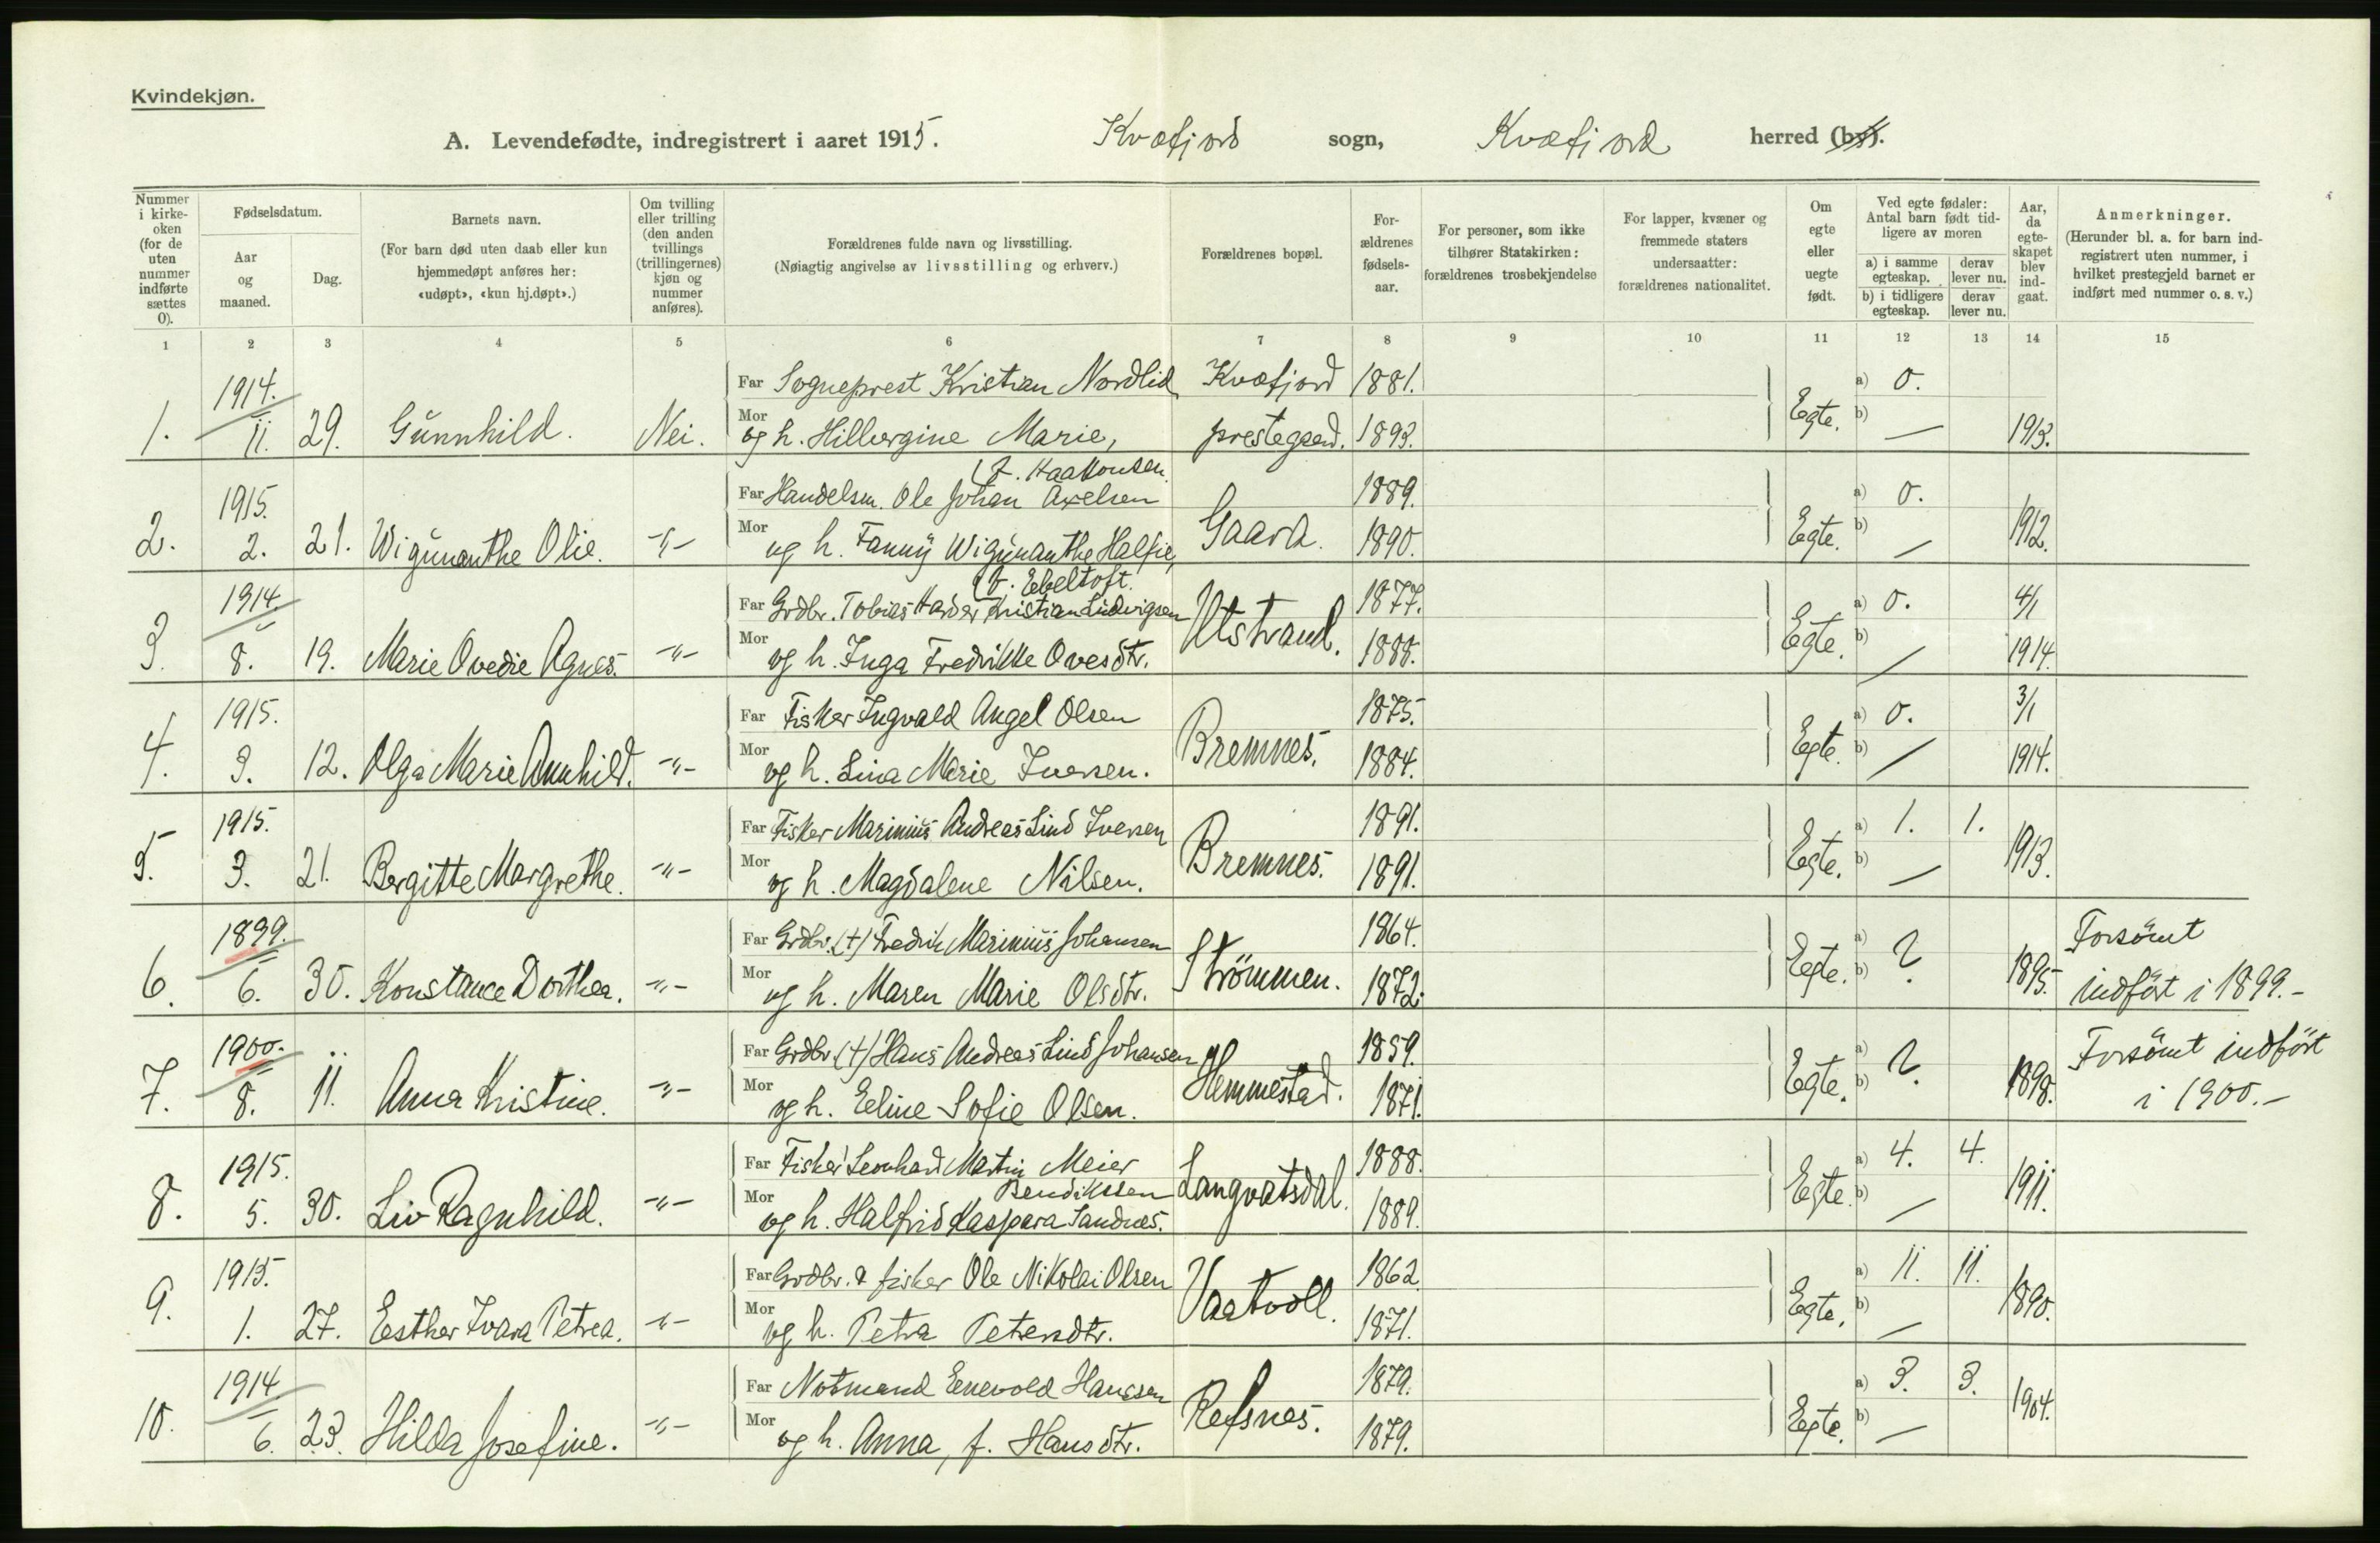 Kvindekjøn.
A. Levendefødte, indregistrert i aaret 1915. Kvæfjord sogn, Kvæfjord herred (by).
Nummer i kirke-oken (for de uten nummer indførte sættes 0).
Fødselsdatum.
Aar og maaned.
Dag.
Barnets navn.
(For barn død uten daab eller kun hjemmedøpt anføres her: «udøpt», «kun hj.døpt».)
Om tvilling eller trilling (den anden tvillings (trillingernes) kjøn og nummer anføres).
Forældrenes fulde navn og livsstilling.
(Nøiagtig angivelse av livsstilling og erhverv.)
Forældrenes bopæl.
For-ældrenes fødsels-aar.
For personer, som ikke tilhører Statskirken: forældrenes trosbekjendelse
For lapper, kvæner og fremmede staters undersaatter: forældrenes nationalitet.
Om egte eller uegte født.
Ved egte fødsler: Antal barn født tid-ligere av moren
a) i samme egteskap. derav lever nu.
b) i tidligere egteskap. derav lever nu.
Aar, da egte-skapet blev ind-gaat.
Anmerkninger.
(Herunder bl. a. for barn ind-registrert uten nummer, i hvilket prestegjeld barnet er indført med nummer o. s. v.)
1 2 3 4 5 6 7 8 9 10 11 12 13 14 15
1914. Far Sogneprest Kristian Nordlid Kvæfjord 1881. a) 0.
1. 11. 29. Gunnhild. Nei. Mor og h. Hilborgine Marie, prestegaard. 1893. Egte. b) — 1913.
(f. Haakonsen.
1915. Far Handelsm. Ole Johan Axelsen 1889. a) 0.
2. 2. 21. Wigunanthe Olie. -"- Mor og h. Fanny Wigunanthe Halfie, Gaara. 1890. Egte. b) — 1912.
(f. Ebeltoft.
1914. Far Grdbr. Tobias Harder Kristian Ludvigsen Utstrand. 1877. a) 0. 4/1
3. 8. 19. Marie Ovedie Agnes. -"- Mor og h. Inga Fredrikke Ovesdtr. 1888. Egte. b) — 1914.
1915. Far Fisker Ingvald Angel Olsen 1875. a) 0. 3/1
4. 3. 12. Olga Marie Annhild. -"- Mor og h. Lina Marie Iversen. Bremnes. 1884. Egte. b) — 1914.
1915. Far Fisker Marinius Andreas Lind Iversen 1891. a) 1. 1.
5. 3. 21. Bergitte Margrethe. -"- Mor og h. Magdalene Nilsen. Bremnes. 1891. Egte. b) — 1913.
1899. Far Grdbr. (+) Fredrik Marinius Johansen 1864. a) ? Forsömt
6. 6. 30. Konstance Dorthea. -"- Mor og h. Maren Marie Olsdtr. Strömmen. 1872. Egte. b) 1895. indført i 1899.-
1900. Far Grdbr. (+) Hans Andreas Lind Johansen 1859. a) ? Forsömt indfört
7. 8. 11. Anna Kristine. -"- Mor og h. Eeline Sofie Olsen. Hemmestad. 1871. Egte. b) 1898. i 1900.-
1915. Far Fisker Leonhard Martin Meier 1888. a) 4. 4.
Bendikssen
8. 5. 30. Liv Ragnhild. -"- Mor og h. Halfrid Kaspara Sandnes. Langvatsdal. 1889. Egte. b) — 1911.
1915. Far Grdbr. & fisker Ole Nikolai Olsen 1862 a) 11. 11.
9. 1. 27. Esther Ivara Petrea. -"- Mor og h. Petra Petersdtr. Vaatvoll. 1871. Egte. b) — 1890.
1914 Far Notmand Enevold Hanssen 1879. a) 3. 3.
10. 6. 23. Hilda Josefine. -"- Mor og h. Anna, f. Hansdtr. Refsnes. 1879. Egte. b) — 1904.